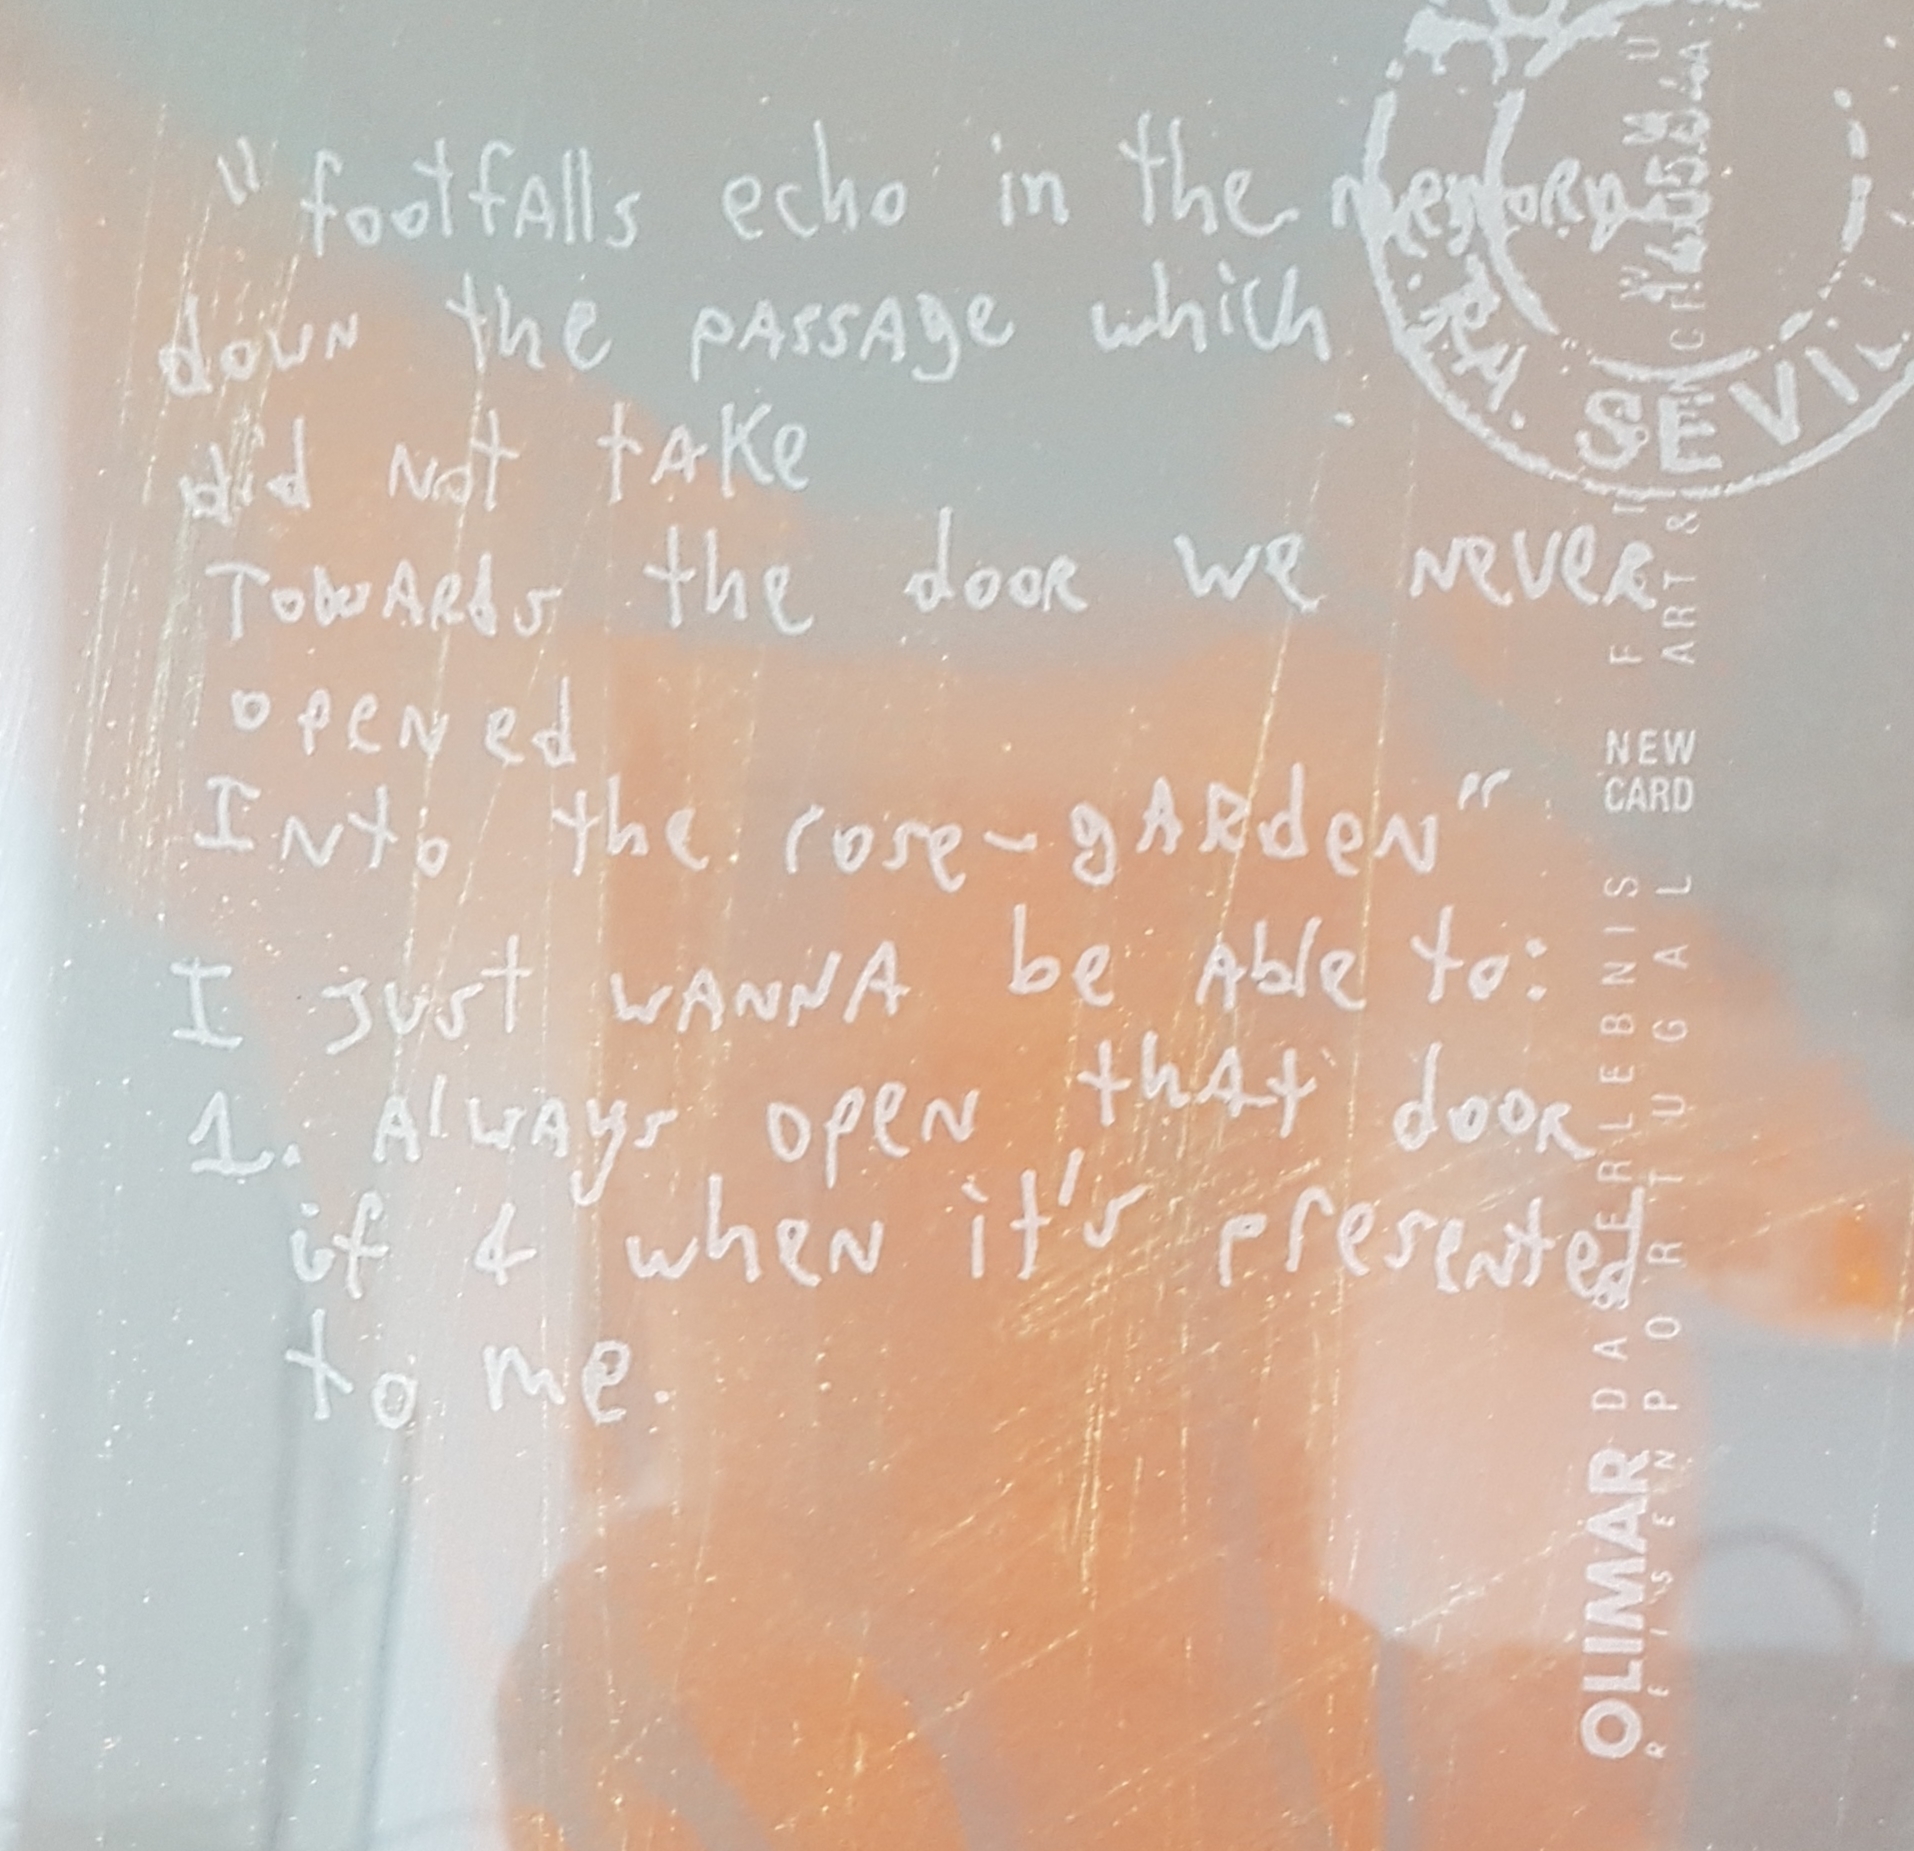 "footfalls echo in the memory
down the passage which
did not take
Towards the door we never
opened
Into the rose-garden"
I just wanna be able to:
1. Always open that door
if & when it's presented
to me.
SEVIL
NEW
CARD
OLIMAR DAS ERLEBNIS
REISEN PORTUGAL
ART &